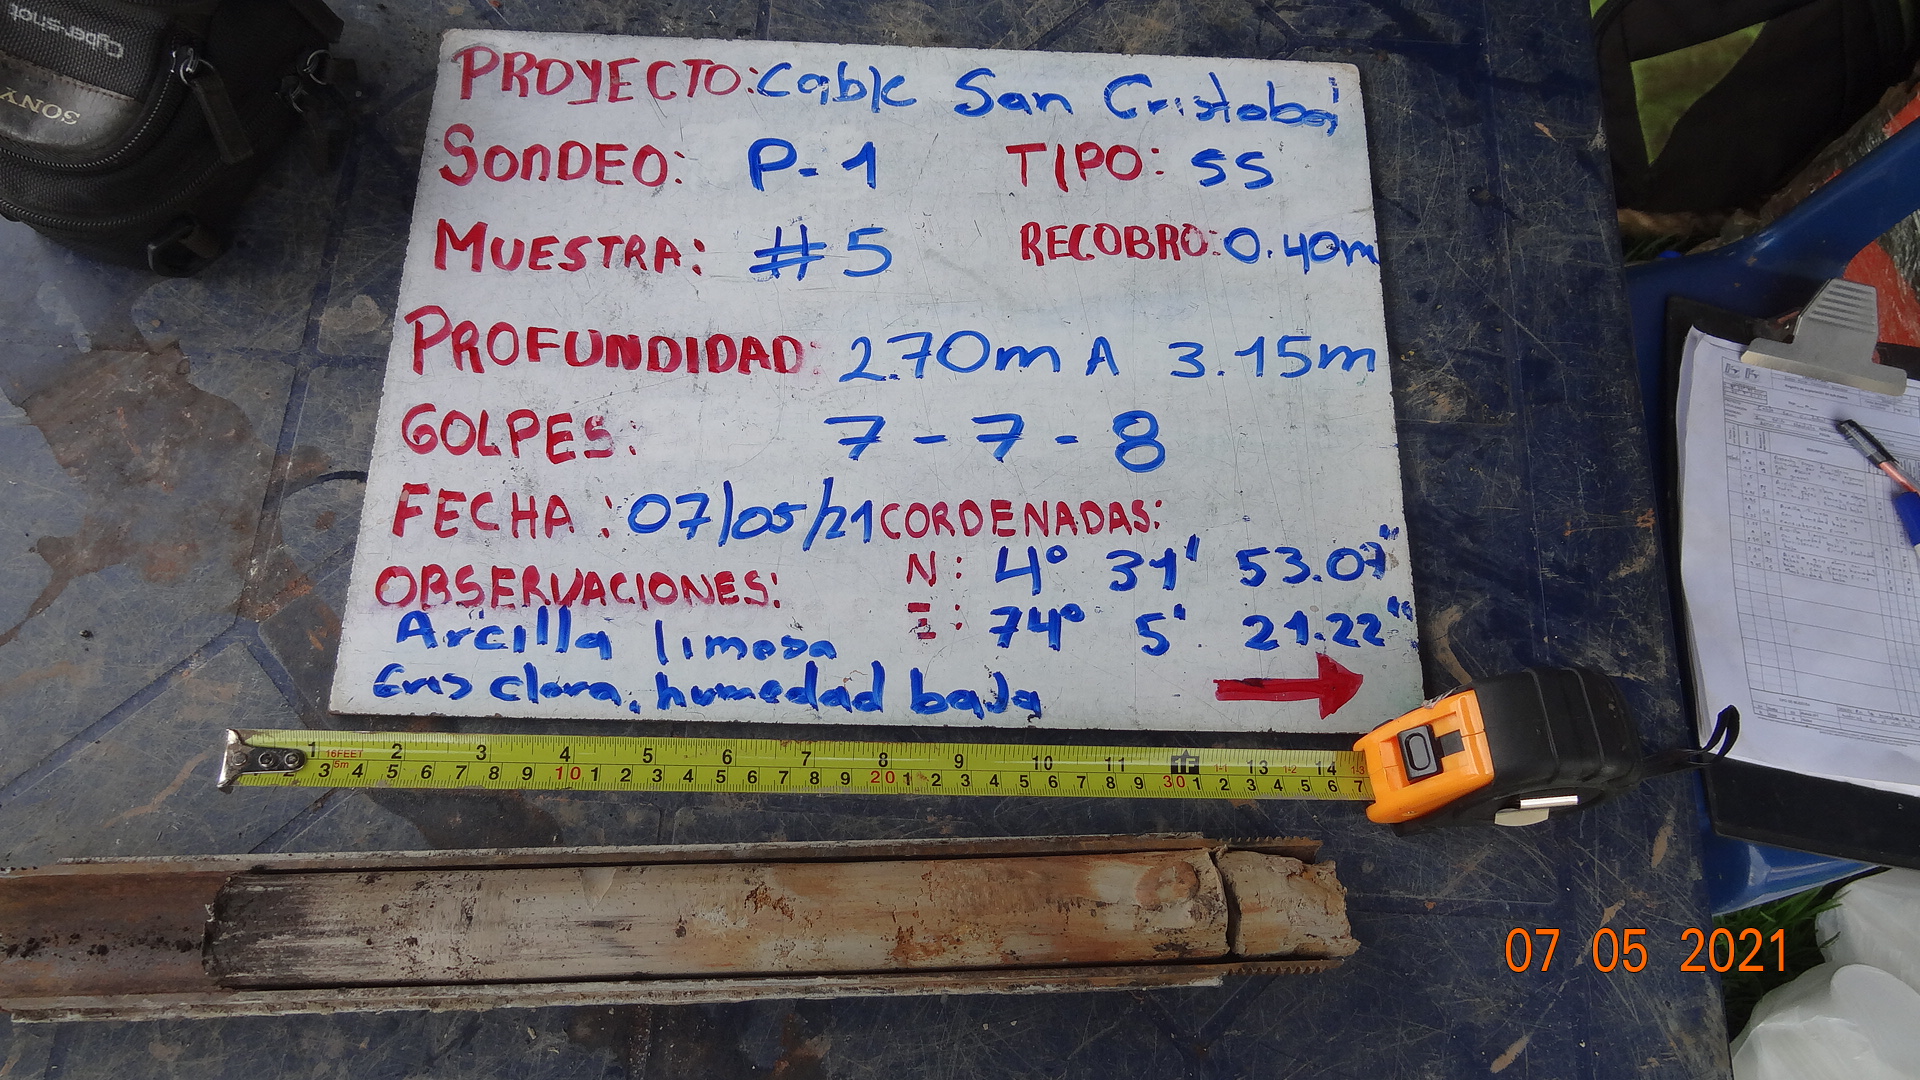 Cyber-shot
SONY
PROYECTO: Cable San Cristobal
SONDEO: P-1 TIPO: SS
MUESTRA: #5 RECOBRO: 0.40m
PROFUNDIDAD: 2.70m A 3.15m
GOLPES: 7 - 7 - 8
FECHA: 07/05/21 CORDENADAS:
N: 4° 31' 53.07"
OBSERVACIONES:
E: 74° 5' 21.22"
Arcilla limosa
Gris clara, humedad baja
1 16FEET 2 3 4 5 6 7 8 9 10 11 1F 1-1 13 1-2 14 1-3
2 3 5m 4 5 6 7 8 9 10 1 2 3 4 5 6 7 8 9 20 1 2 3 4 5 6 7 8 9 30 1 2 3 4 5 6 7
07 05 2021